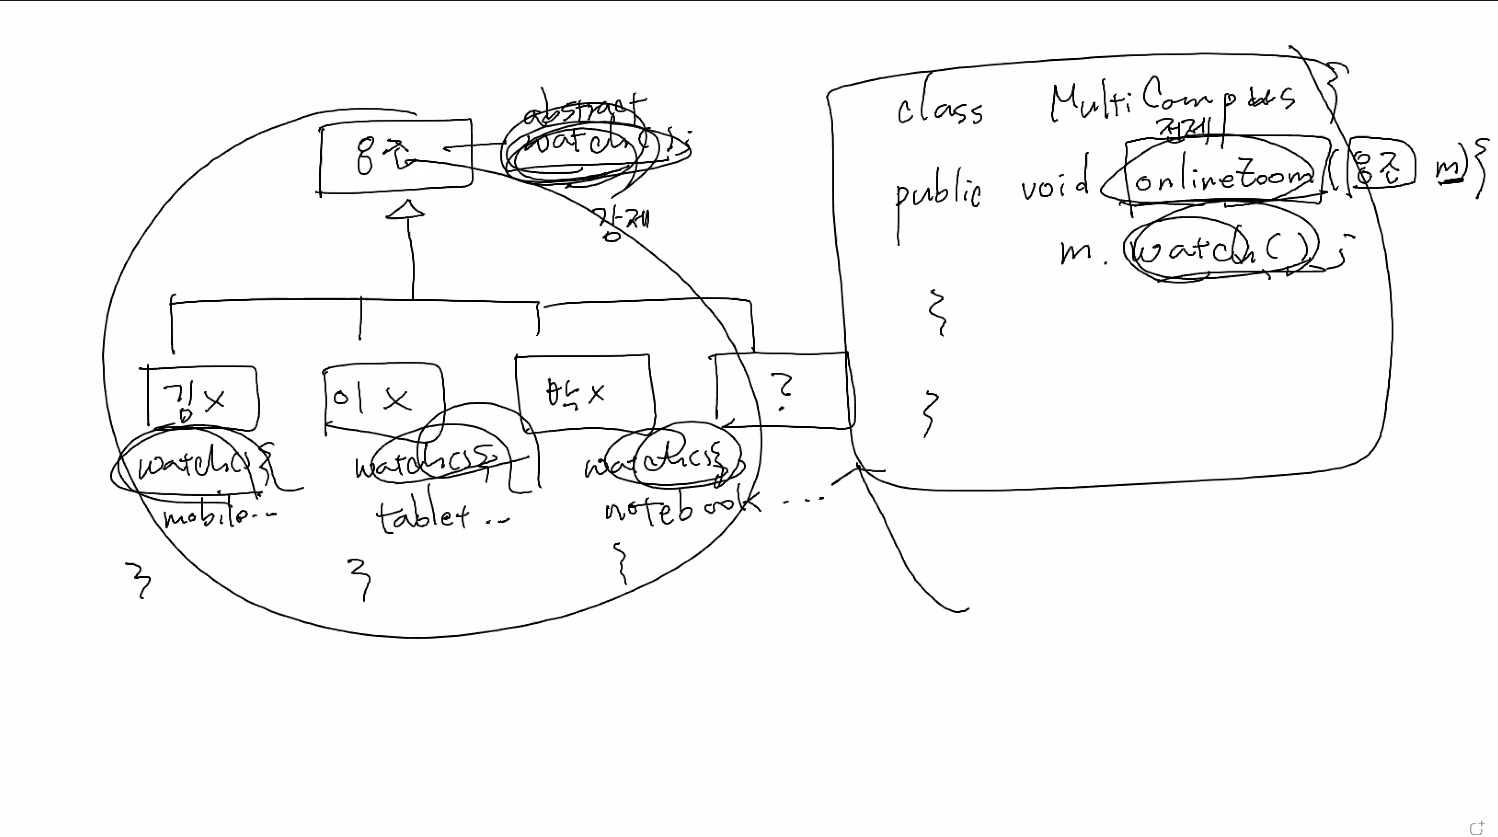 abstract
용준
watch();
강제
김X
이X
박X
?
watch(){
mobile...
}
watch(){
tablet...
}
watch(){
notebook ....
}
class MultiCampus {
public void onlineZoom (용준 m){
m.watch();
}
}